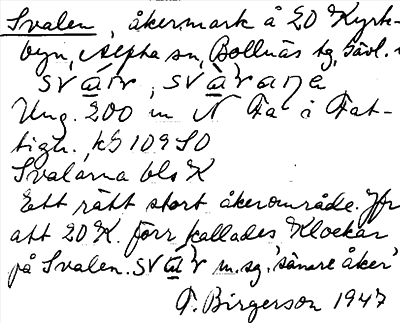 Svalen, åkermark å 20 Kyrk-
byn, Alfta sn, Bollnäs tg, Gävl. l
svàr, svàraŋe
Ung. 200 m N Fa i Fat-
tigh. kS 109 SO
Svalarna bls K
Ett rätt stort åkerområde. Jfr
att 20 K. förr kallades Klockar
på Svalen. svàr m.sg. 'sämre åker'
T. Birgerson 1947